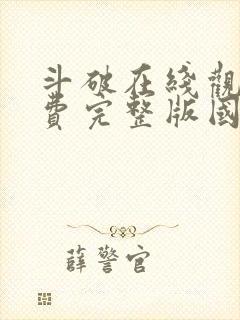 斗破在綫觀
費完整版國
薛警官